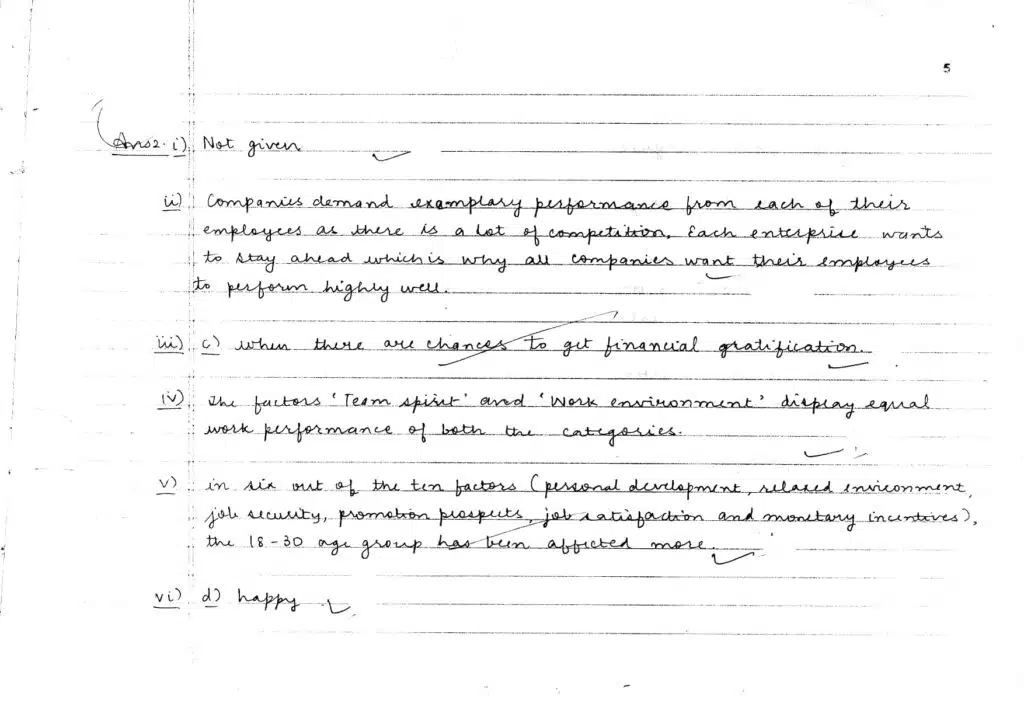 5
Ans2. i) Not given
ii) Companies demand exemplary performance from each of their
employees as there is a lot of competition. Each enterprise wants
to stay ahead which is why all companies want their employees
to perform highly well.
iii) c) when there are chances to get financial gratification.
iv) The factors 'Team spirit' and 'Work environment' display equal
work performance of both the categories.
v) in six out of the ten factors (personal development, relaxed environment,
job security, promotion prospects, job satisfaction and monetary incentives),
the 18-30 age group has been affected more.
vi) d) happy